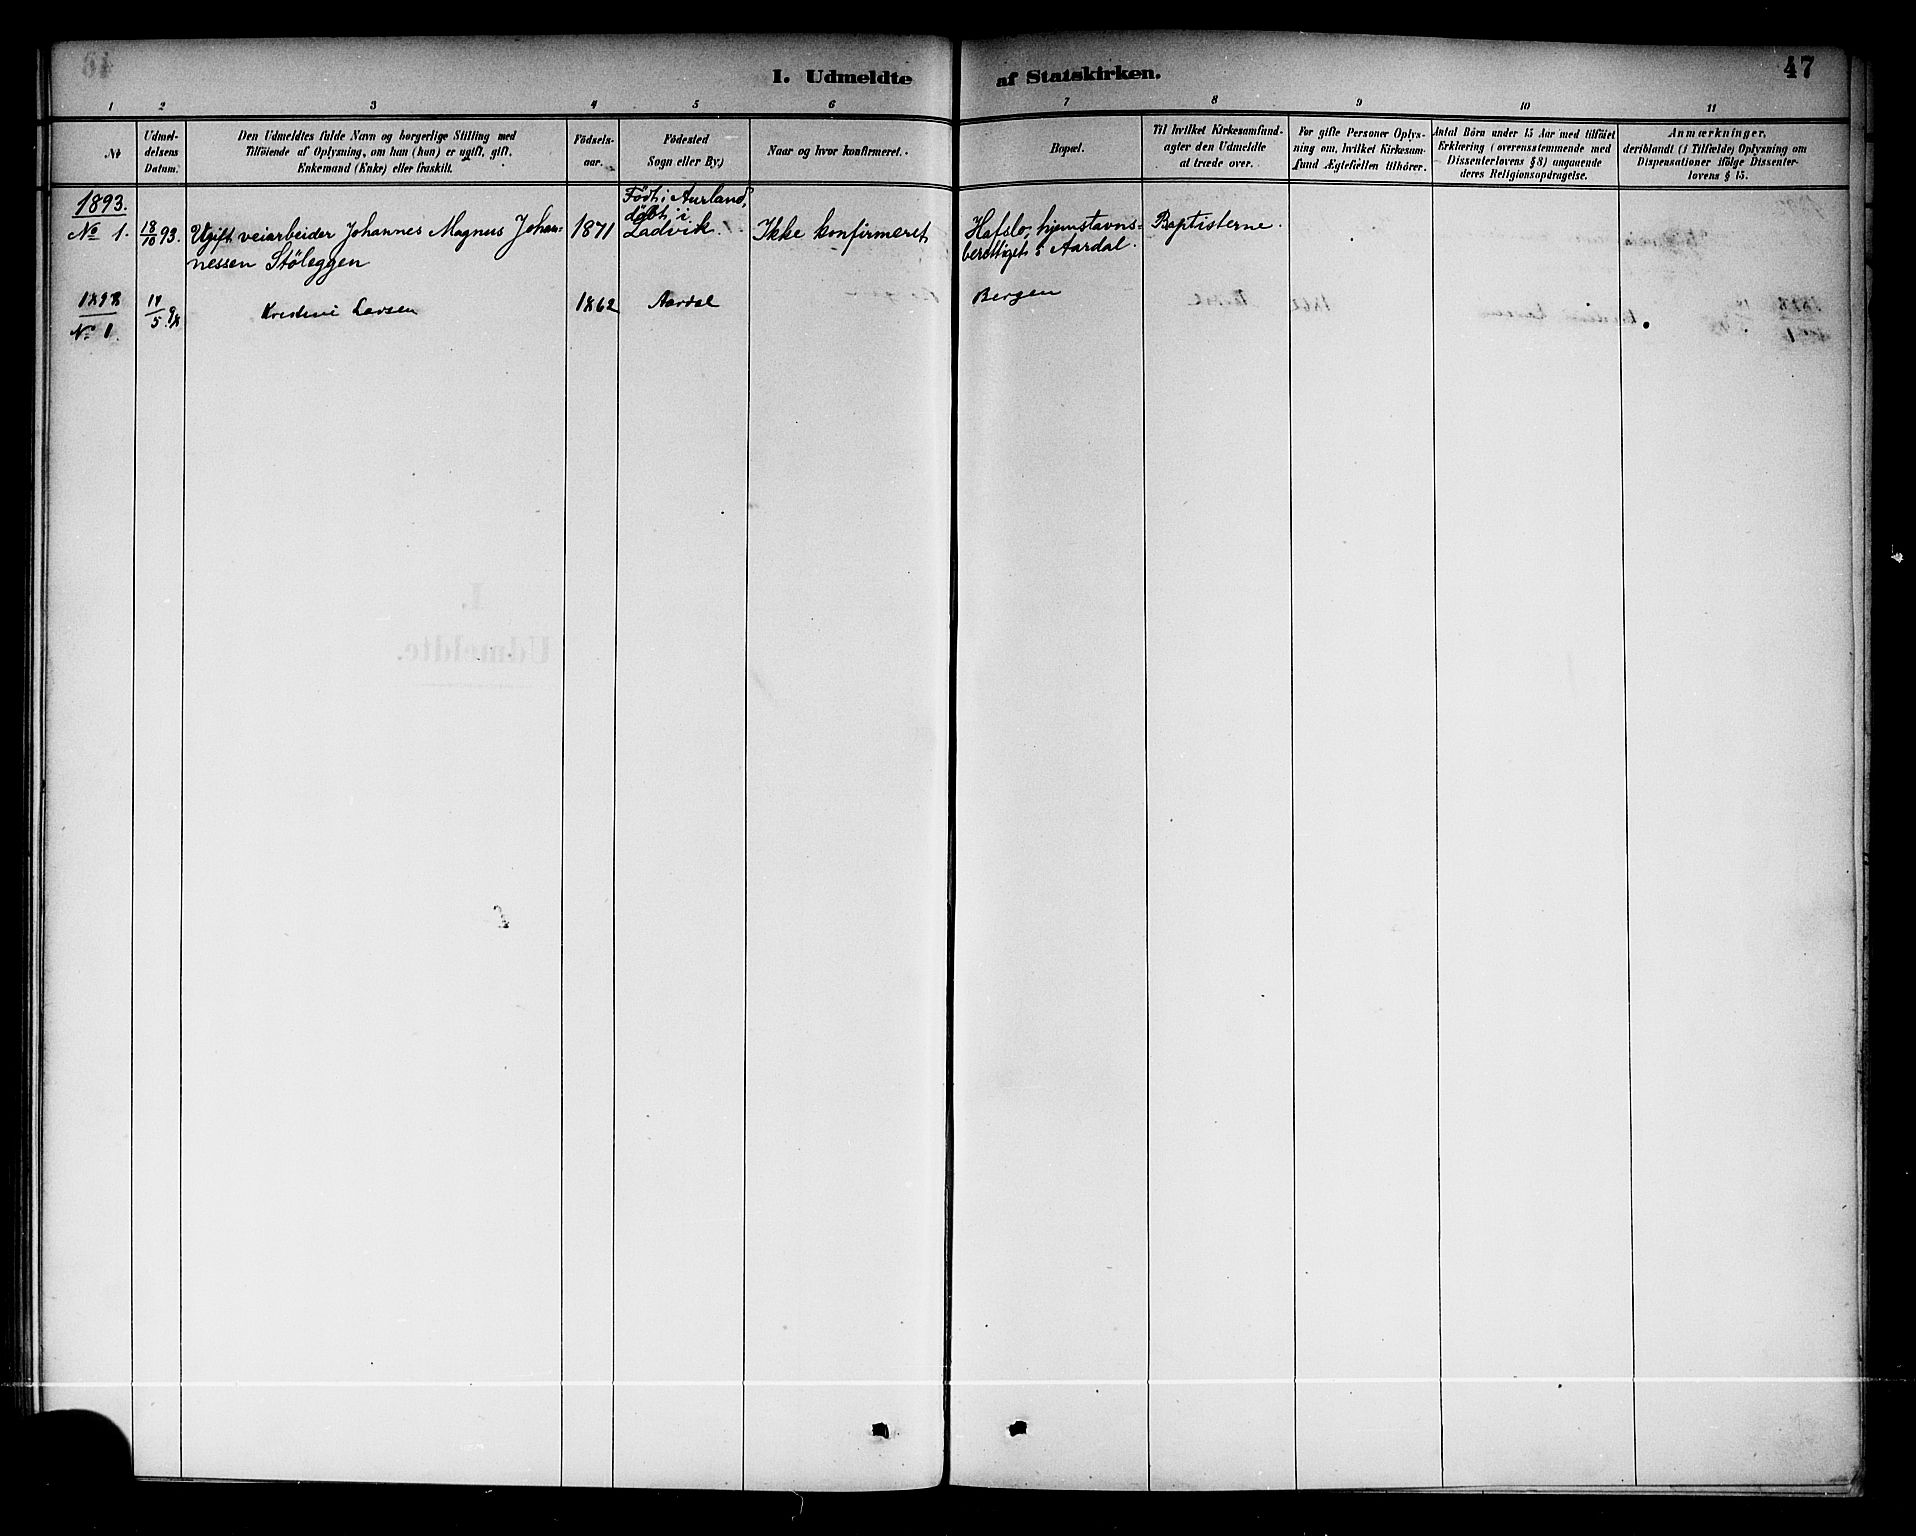 I. Udmeldte af Statskirken.
47
1 2 3 4 5 6 7 8 9 10 11
No
Udmel-
delsens
Datum.
Den Udmeldtes fulde Navn og borgerlige Stilling med
Tilföiende af Oplysning, om han (hun) er ugift, gift,
Enkemand (Enke) eller fraskilt.
Födsels-
aar.
Födested
Sogn eller By.)
Naar og hvor konfirmeret.
Bopæl.
Til hvilket Kirkesamfund
agter den Udmeldte
at træde over.
For gifte Personer Oplys-
ning om, hvilket Kirkesam-
fund Ægtefællen tilhörer.
Antal Börn under 15 Aar med tilföiet
Erklæring (overensstemmende med
Dissenterlovens § 8) angaaende
deres Religionsopdragelse.
Anmærkninger,
deriblandt (i Tilfælde) Oplysning om
Dispensationer ifölge Dissenter-
lovens § 15.
1893.
No 1.
18/10 93.
Ugift veiarbeider Johannes Magnus Johan-
nessen Stöleggen
1871
Födt i Aurland,
döbt i
Ladvik.
Ikke konfirmeret
Hafslo, hjemstavns-
berettiget i Aardal.
Baptisterne.
1898
No 1.
17/5 98
Larsen
1862
Aardal
Bergen